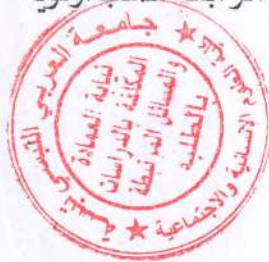 جامعة العربي التبسي تبسة
كلية العلوم الإنسانية والاجتماعية
نيابة العمادة
المكلفة بالدراسات
والمسائل المرتبطة
بالطلبة